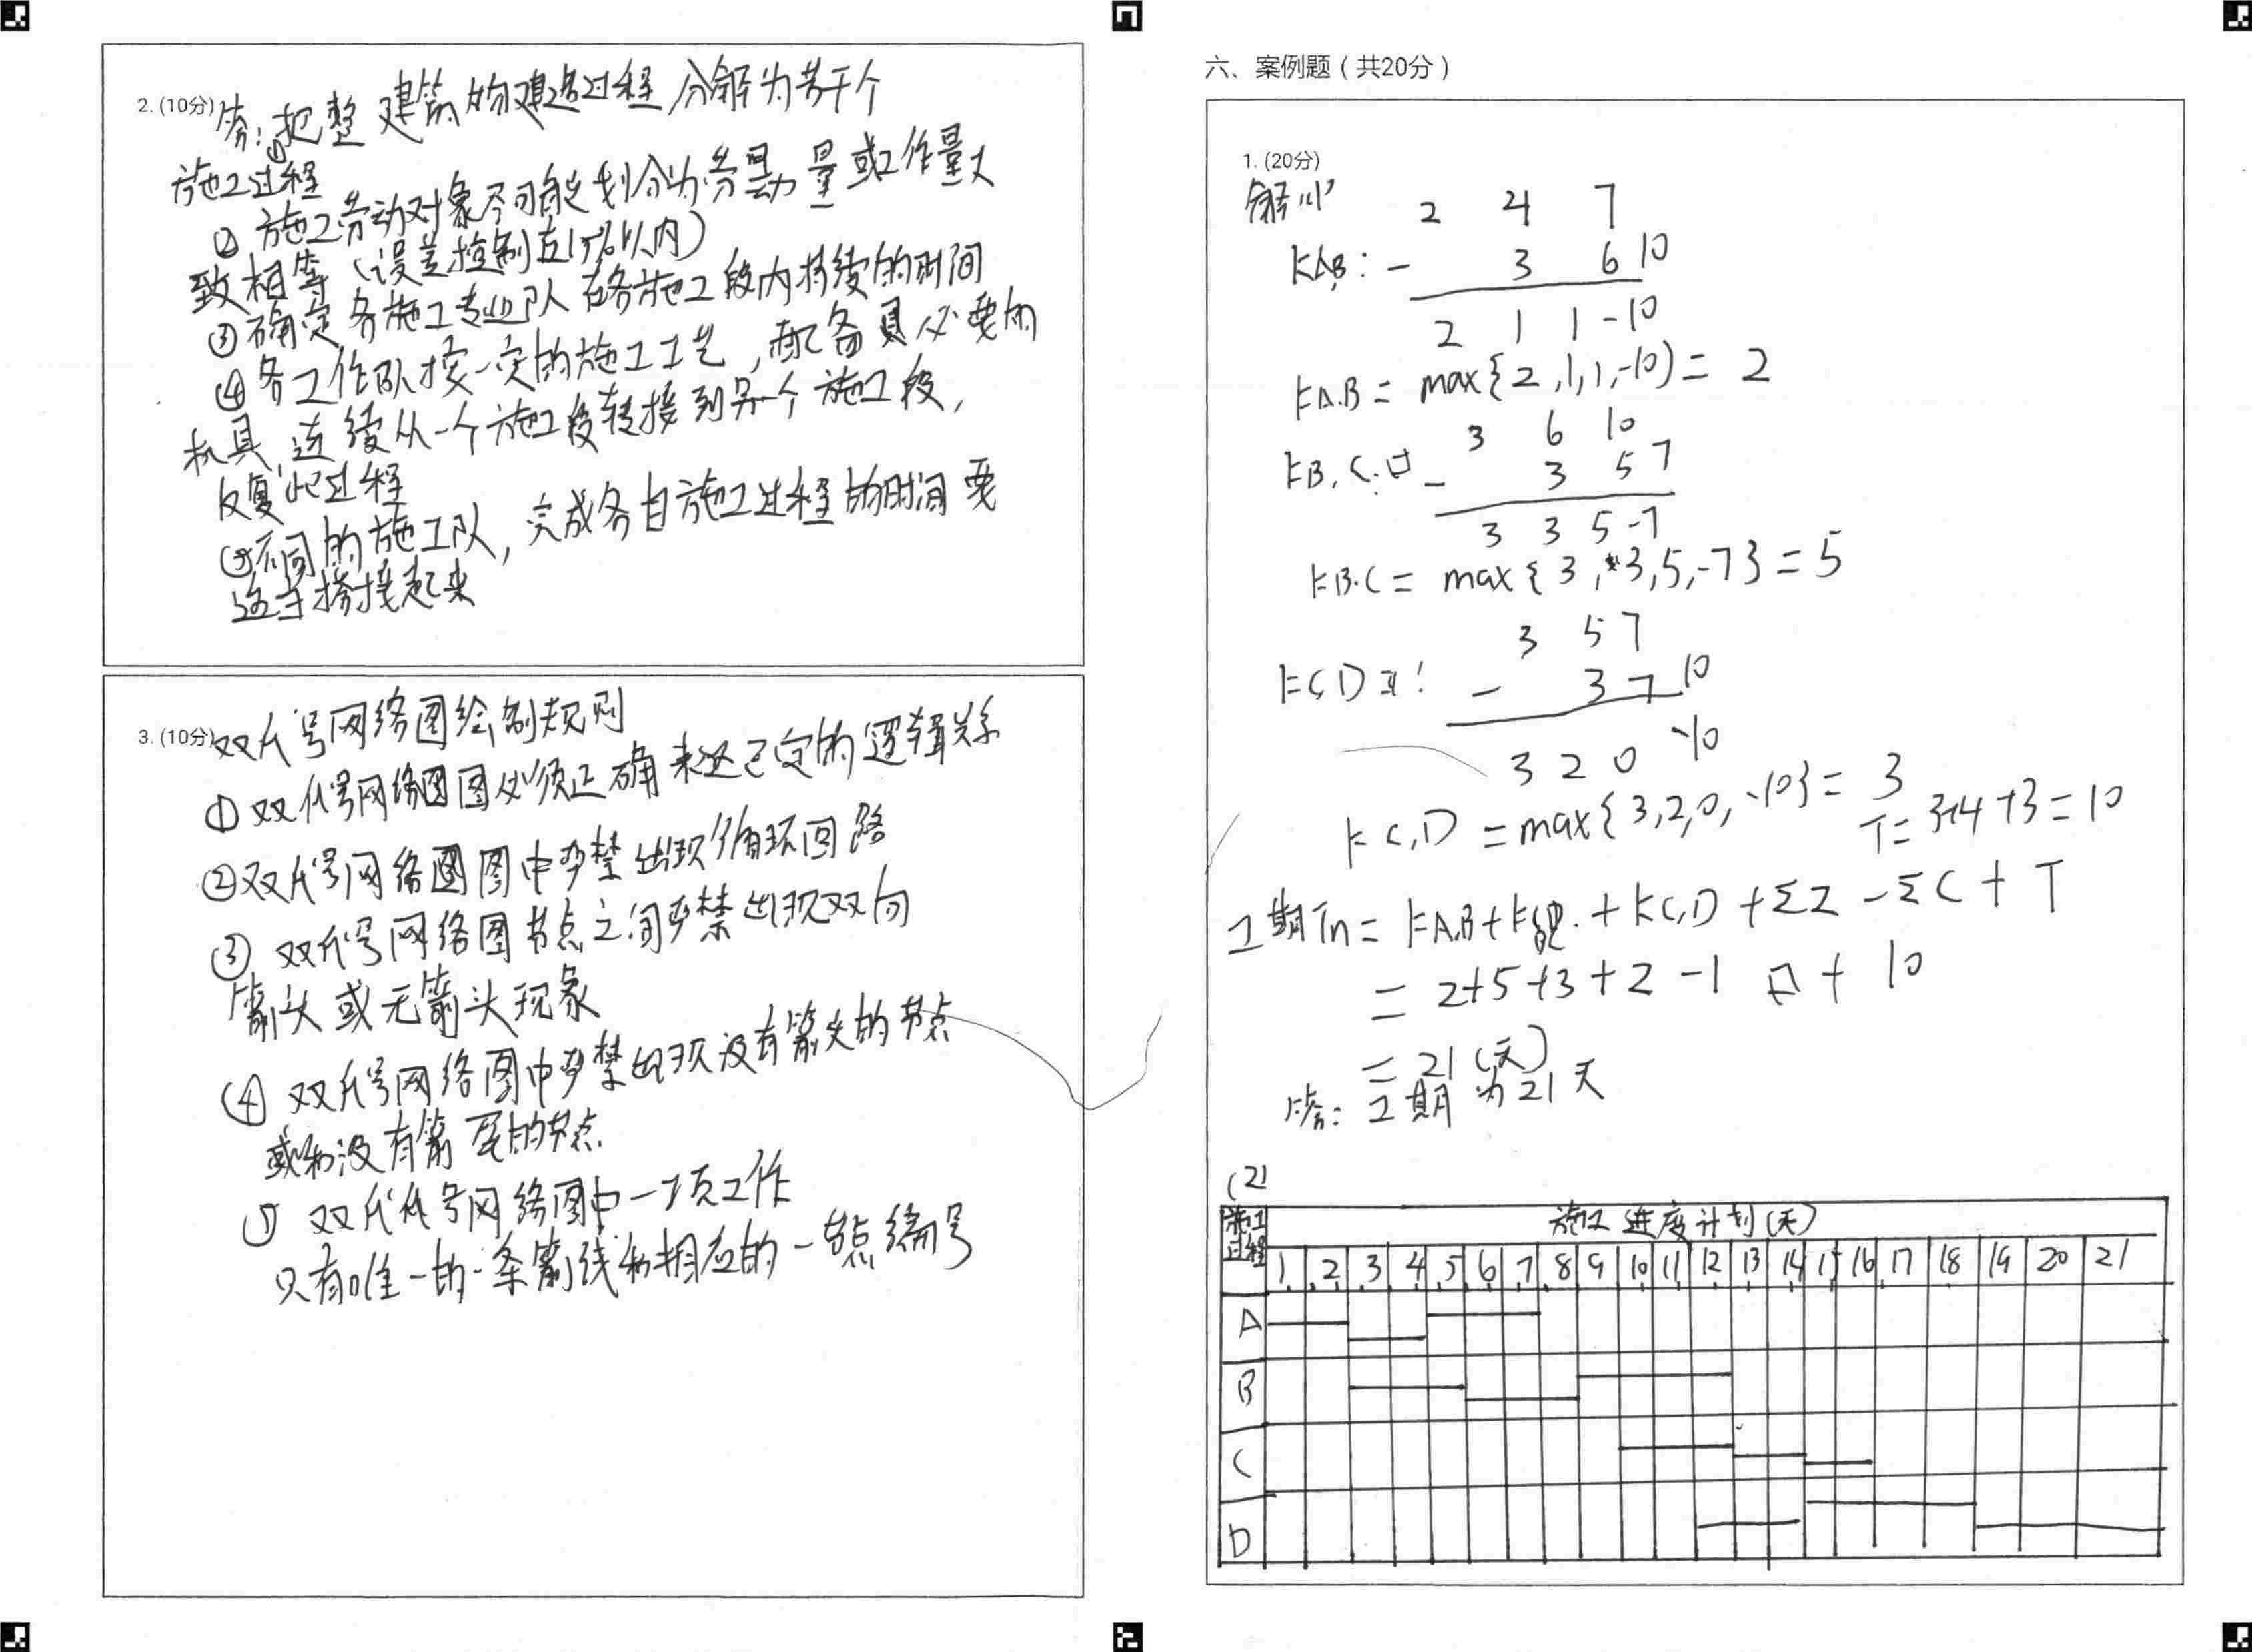 2. (10分) 答:①把整建筑的建造过程分解为若干个
施工过程
② 施工劳动对象尽可能划分为劳动量或工作量大
致相等(误差控制在15%以内)
③确定各施工专业队在各施工段内持续的时间
④各工作队按一定的施工工艺,配备具必要的
机具,连续从一个施工段转接到另一个施工段,
反复此过程
⑤不同的施工队,完成各自施工过程的时间要
适当搭接起来
3. (10分) 双代号网络图绘制规则
① 双代号网络图图必须正确表达已定的逻辑关系
②双代号网络图图中严禁出现循环回路
③ 双代号网络图节点之间严禁出现双向
箭头或无箭头现象
④ 双代号网络图中严禁出现没有箭头的节点
或和没有箭尾的节点
⑤ 双代代号网络图中一项工作
只有唯一的一条箭线和相应的一节点编号
六、案例题(共20分)
1. (20分)
解(1)
2 4 7
KA,B: - 3 6 10
2 1 1 -10
KA.B = max{2,1,1,-10} = 2
3 6 10
KB.C - 3 5 7
3 3 5 -7
KB.C = max{3,3,5,-7} = 5
3 5 7
KC,D - 3 7 10
3 2 0 -10
KC,D = max{3,2,0,-10} = 3
T= 3+4+3=10
工期Tn = KA,B + KB.C + KC,D + ΣZ - ΣC + T
= 2+5+3+2-1 + 10
= 21(天)
答:工期为21天
(2)
施工过程 施工进度计划(天)
1 2 3 4 5 6 7 8 9 10 11 12 13 14 15 16 17 18 19 20 21
A
B
C
D